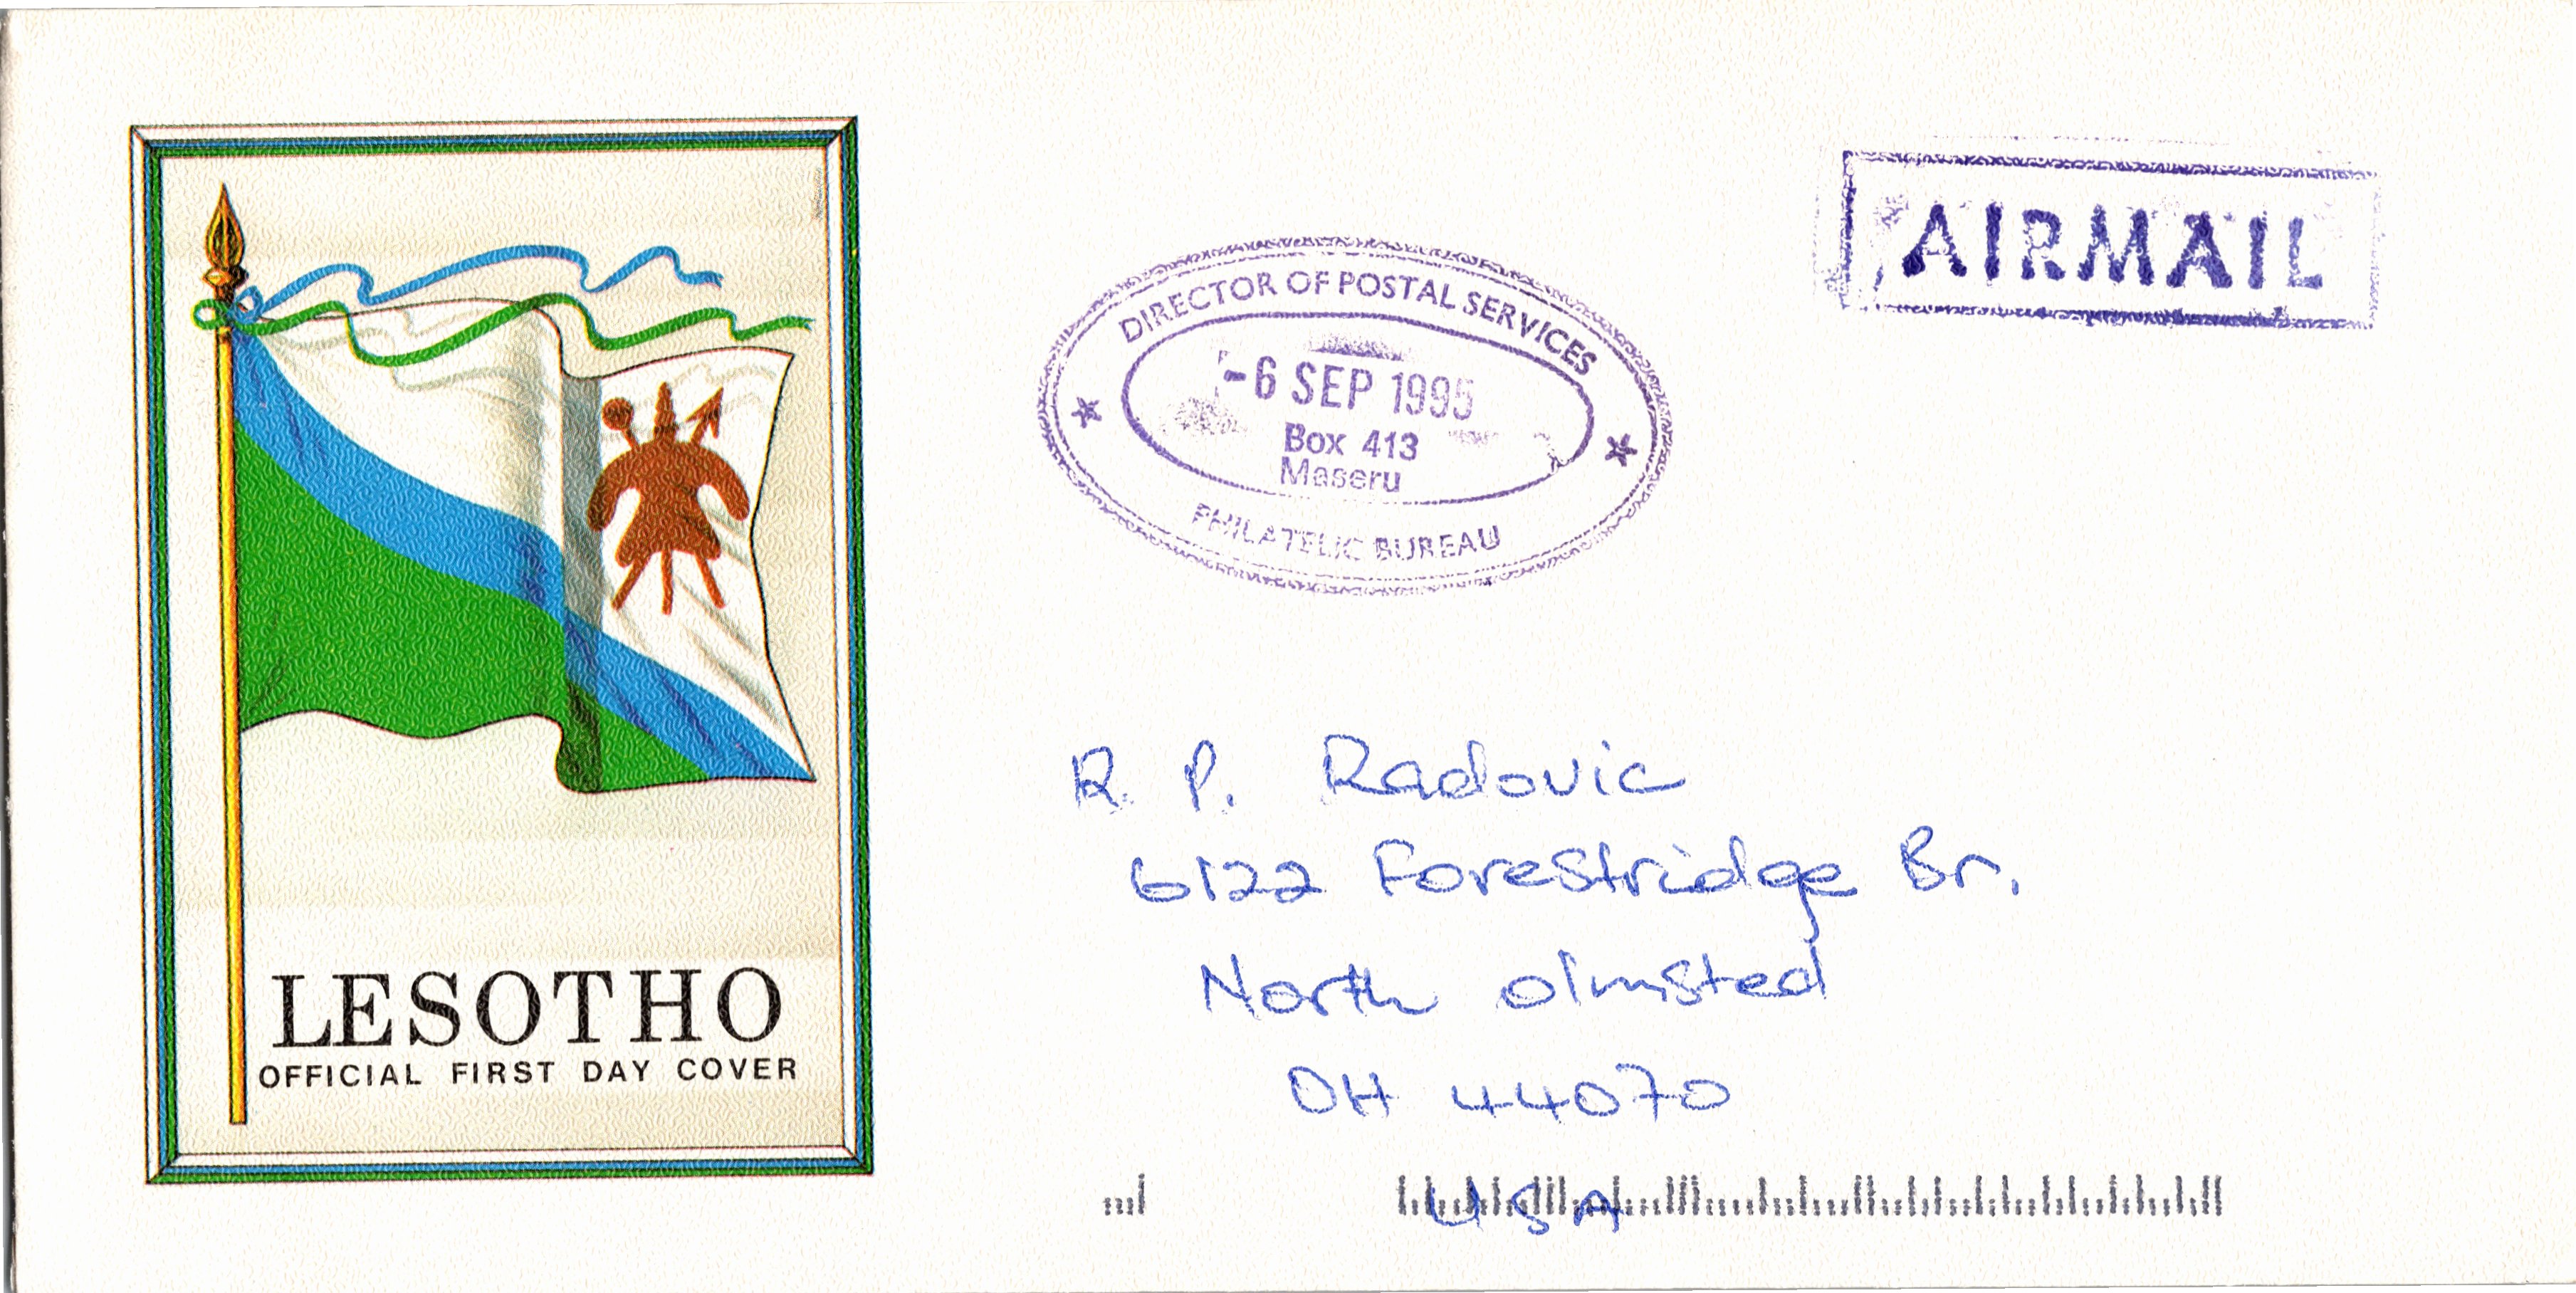 LESOTHO
OFFICIAL FIRST DAY COVER
DIRECTOR OF POSTAL SERVICES
-6 SEP 1995
Box 413
Maseru
PHILATELIC BUREAU
AIRMAIL
R. P. Radovic
6122 Forestridge Br.
North Olmsted
OH 44070
USA